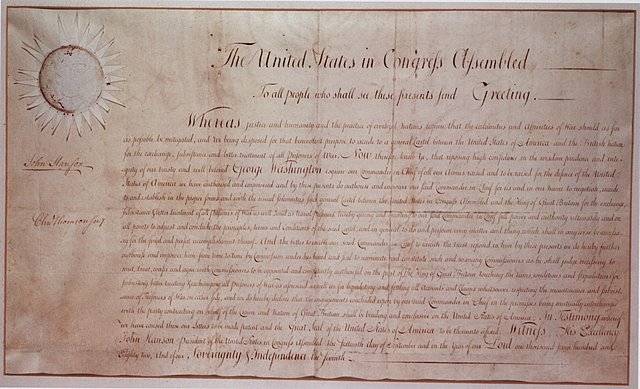 The United States in Congress Assembled
To all people who shall see these presents send Greeting.
Whereas justice and humanity and the practice of civilized nations require that the calamities and asperities of War should as far
as possible be mitigated, and we being disposed for that benevolent purpose to accede to a general Cartel between the United States of America and the British Nation
for the exchange, subsistence and better treatment of all Prisoners of War. Now therefore know ye, that reposing high confidence in the wisdom prudence and inte-
grity of our trusty and well beloved George Washington esquire our Commander in Chief of all our Armies raised and to be raised for the defence of the United
States of America we have authorized and empowered and by these presents do authorize and empower our said Commander in Chief for us and in our name to negotiate, accede
to and establish in the proper forms and with the usual formalities such general Cartel between the United States in Congress Assembled and the King of Great Britain for the exchange,
subsistence & better treatment of all prisoners of War as well land as Naval Prisoners hereby giving and granting to our said Commander in Chief full power and authority ultimately and on
all points to adjust and conclude the principles, terms and conditions of the said Cartel, and in general to do and perform every matter and thing which shall be
for the great and perfect accomplishment thereof. And the better to enable our said Commander in Chief to execute the trust reposed in him by these presents we do hereby further
authorize and empower him from time to time by Commission under his hand and seal to nominate and constitute such and so many Commissioners as he shall judge necessary to
meet, treat, confer and agree with Commissioners to be appointed and competently authorised on the part of the King of Great Britain touching the terms, conditions and stipulations for
all prisoners of war as aforesaid as well as for liquidating and settling all Accounts and Claims whatsoever respecting the maintenance and subsist-
ence of Prisoners of War on either side, and we do hereby declare that the engagements concluded upon by our said Commander in Chief in the premises being mutually interchanged
with the party contracting on behalf of the Crown and Nation of Great Britain shall be binding and conclusive on the United States of America. In Testimony whereof
we have caused these our Letters to be made patent and the Great Seal of the United States of America to be thereunto affixed. Witness His Excellency
John Hanson President of the United States in Congress Assembled the sixteenth day of September and in the Year of our Lord one thousand seven hundred and
Eighty two, And of our Sovereignty & Independence the seventh
John Hanson
Cha Thomson secy